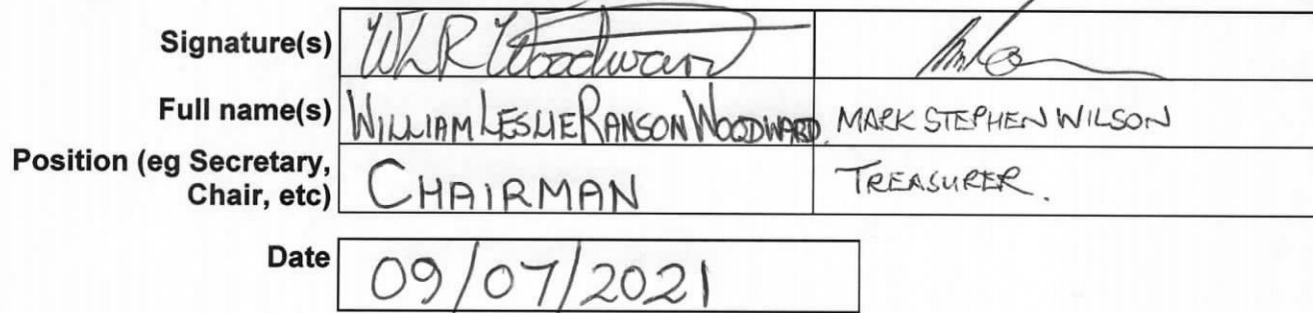 Signature(s) WLR Woodward
Full name(s) WILLIAM LESLIE RANSON WOODWARD. MARK STEPHEN WILSON
Position (eg Secretary, CHAIRMAN TREASURER.
Chair, etc)
Date 09/07/2021